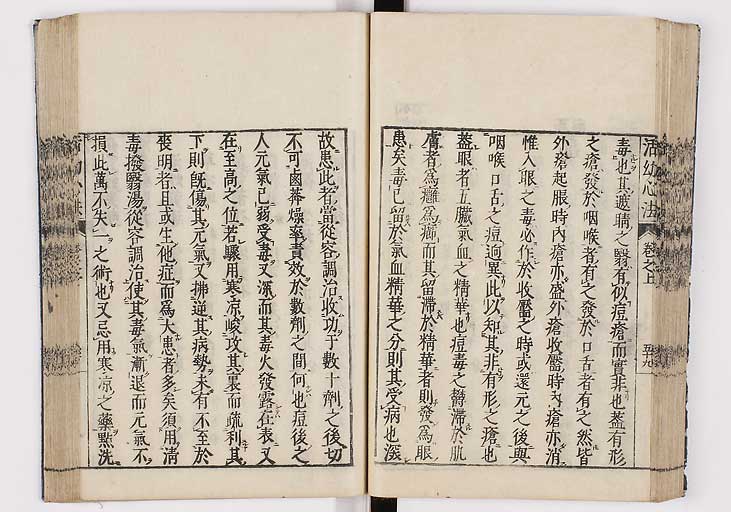 活幼心法 卷之上 五十九
毒也其遮睛之翳有似痘瘡而實非也蓋有形
之瘡發於咽喉者有之發於口舌者有之然皆
外瘡起脹時內瘡亦盛外瘡收靨時內瘡亦消
惟入眼之毒必作於收靨之時或還元之後與
咽喉口舌之痘迥異此以知其非有形之瘡也
蓋眼者五臟氣血之精華也痘毒之欝滯於肌
膚者為癰為癤而其留滯於精華者則發為眼
患矣毒已留於氣血精華之分則其受病也深
故患此者當從容調治收功于數十劑之後切
不可鹵莽燥率責效於數劑之間何也痘後之
人元氣已弱受毒又深而其毒火發露在表又
在至高之位若驟用寒凉峻攻其裏而疏利其
下則既傷其元氣又拂逆其病勢未有不至於
喪明者且或生他症而為大患者多矣須用清
毒撥翳湯從容調治使其毒氣漸退而元氣不
損此萬不失一之術也又忌用寒凉之藥㸃洗